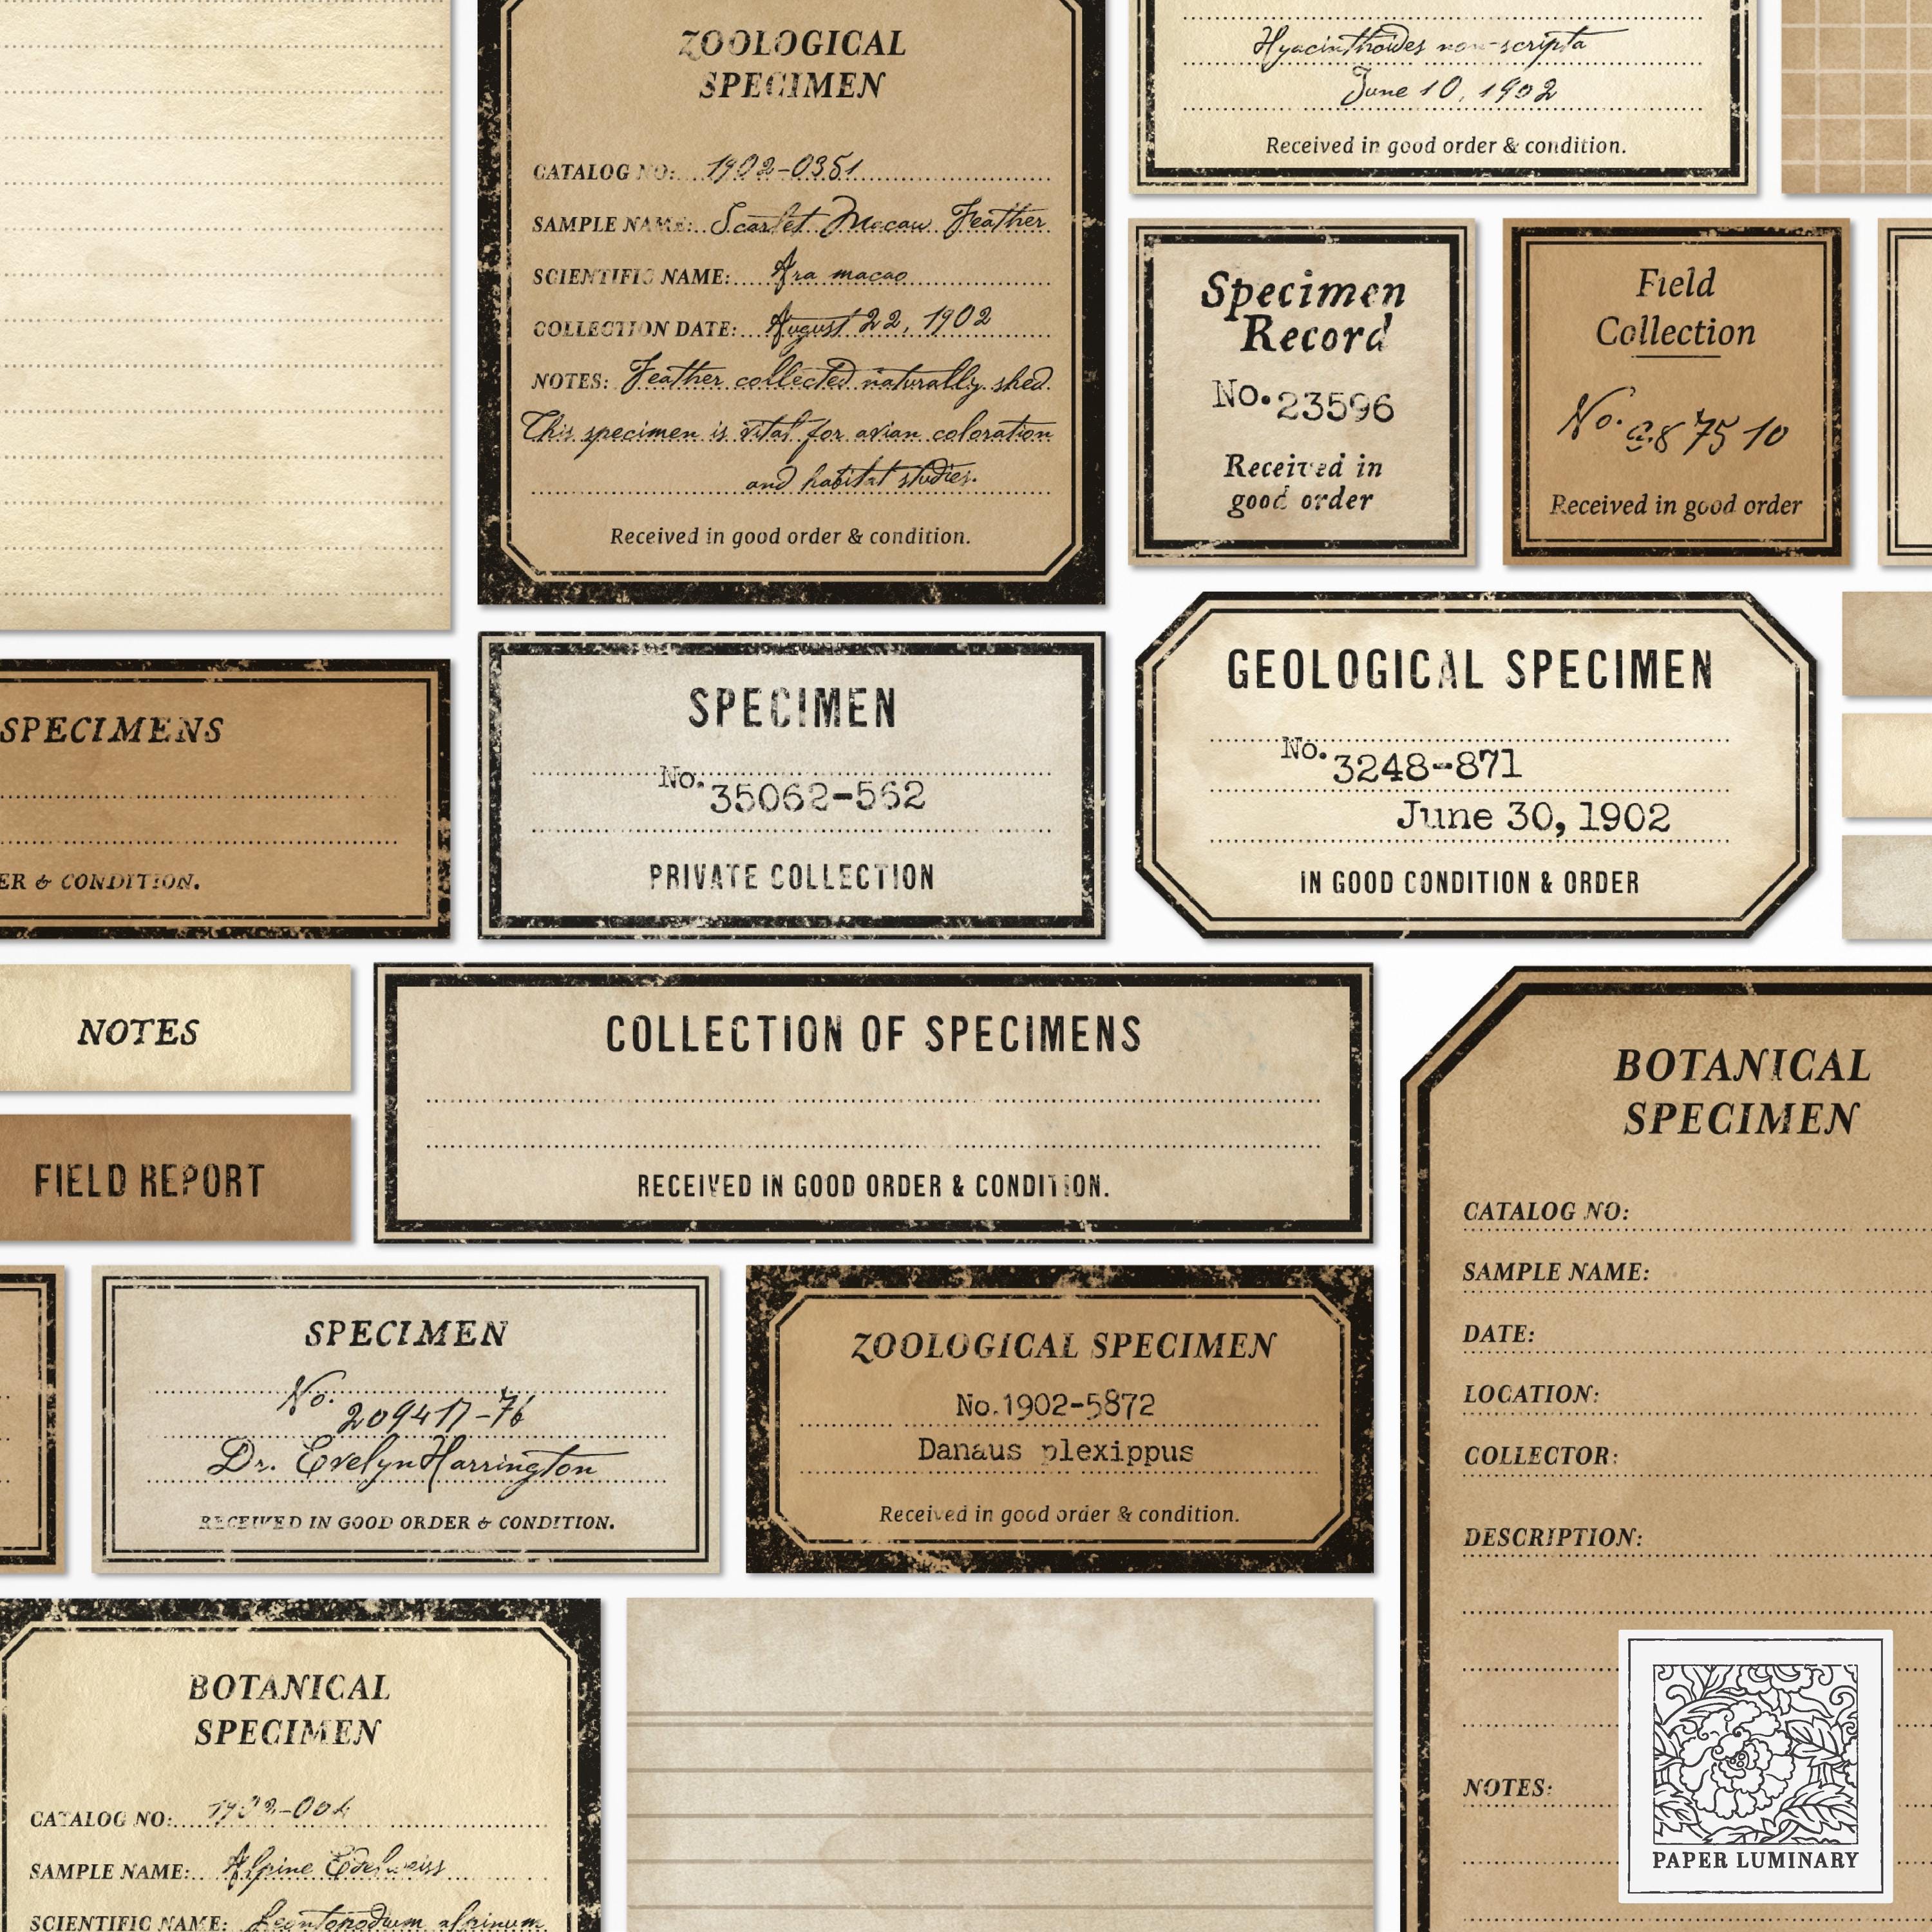 ZOOLOGICAL
SPECIMEN
CATALOG NO: 1902-0351
SAMPLE NAME: Scarlet Macaw Feather
SCIENTIFIC NAME: Ara macao
COLLECTION DATE: August 22, 1902
NOTES: Feather collected naturally shed.
This specimen is vital for avian coloration
and habitat studies.
Received in good order & condition.
Hyacinthoides non-scripta
June 10, 1902
Received in good order & condition.
Specimen
Record
No. 23596
Received in
good order
Field
Collection
No. 7510
Received in good order
SPECIMENS
ER & CONDITION.
SPECIMEN
No. 35062-562
PRIVATE COLLECTION
GEOLOGICAL SPECIMEN
No. 3248-871
June 30, 1902
IN GOOD CONDITION & ORDER
NOTES
FIELD REPORT
COLLECTION OF SPECIMENS
RECEIVED IN GOOD ORDER & CONDITION.
BOTANICAL
SPECIMEN
CATALOG NO:
SAMPLE NAME:
DATE:
LOCATION:
COLLECTOR:
DESCRIPTION:
NOTES:
SPECIMEN
No. 209417-76
Dr. Evelyn Harrington
RECEIVED IN GOOD ORDER & CONDITION.
ZOOLOGICAL SPECIMEN
No.1902-5872
Danaus plexippus
Received in good order & condition.
BOTANICAL
SPECIMEN
CATALOG NO:
SAMPLE NAME: Alpine Edelweiss
SCIENTIFIC NAME: Leontopodium alpinum
PAPER LUMINARY